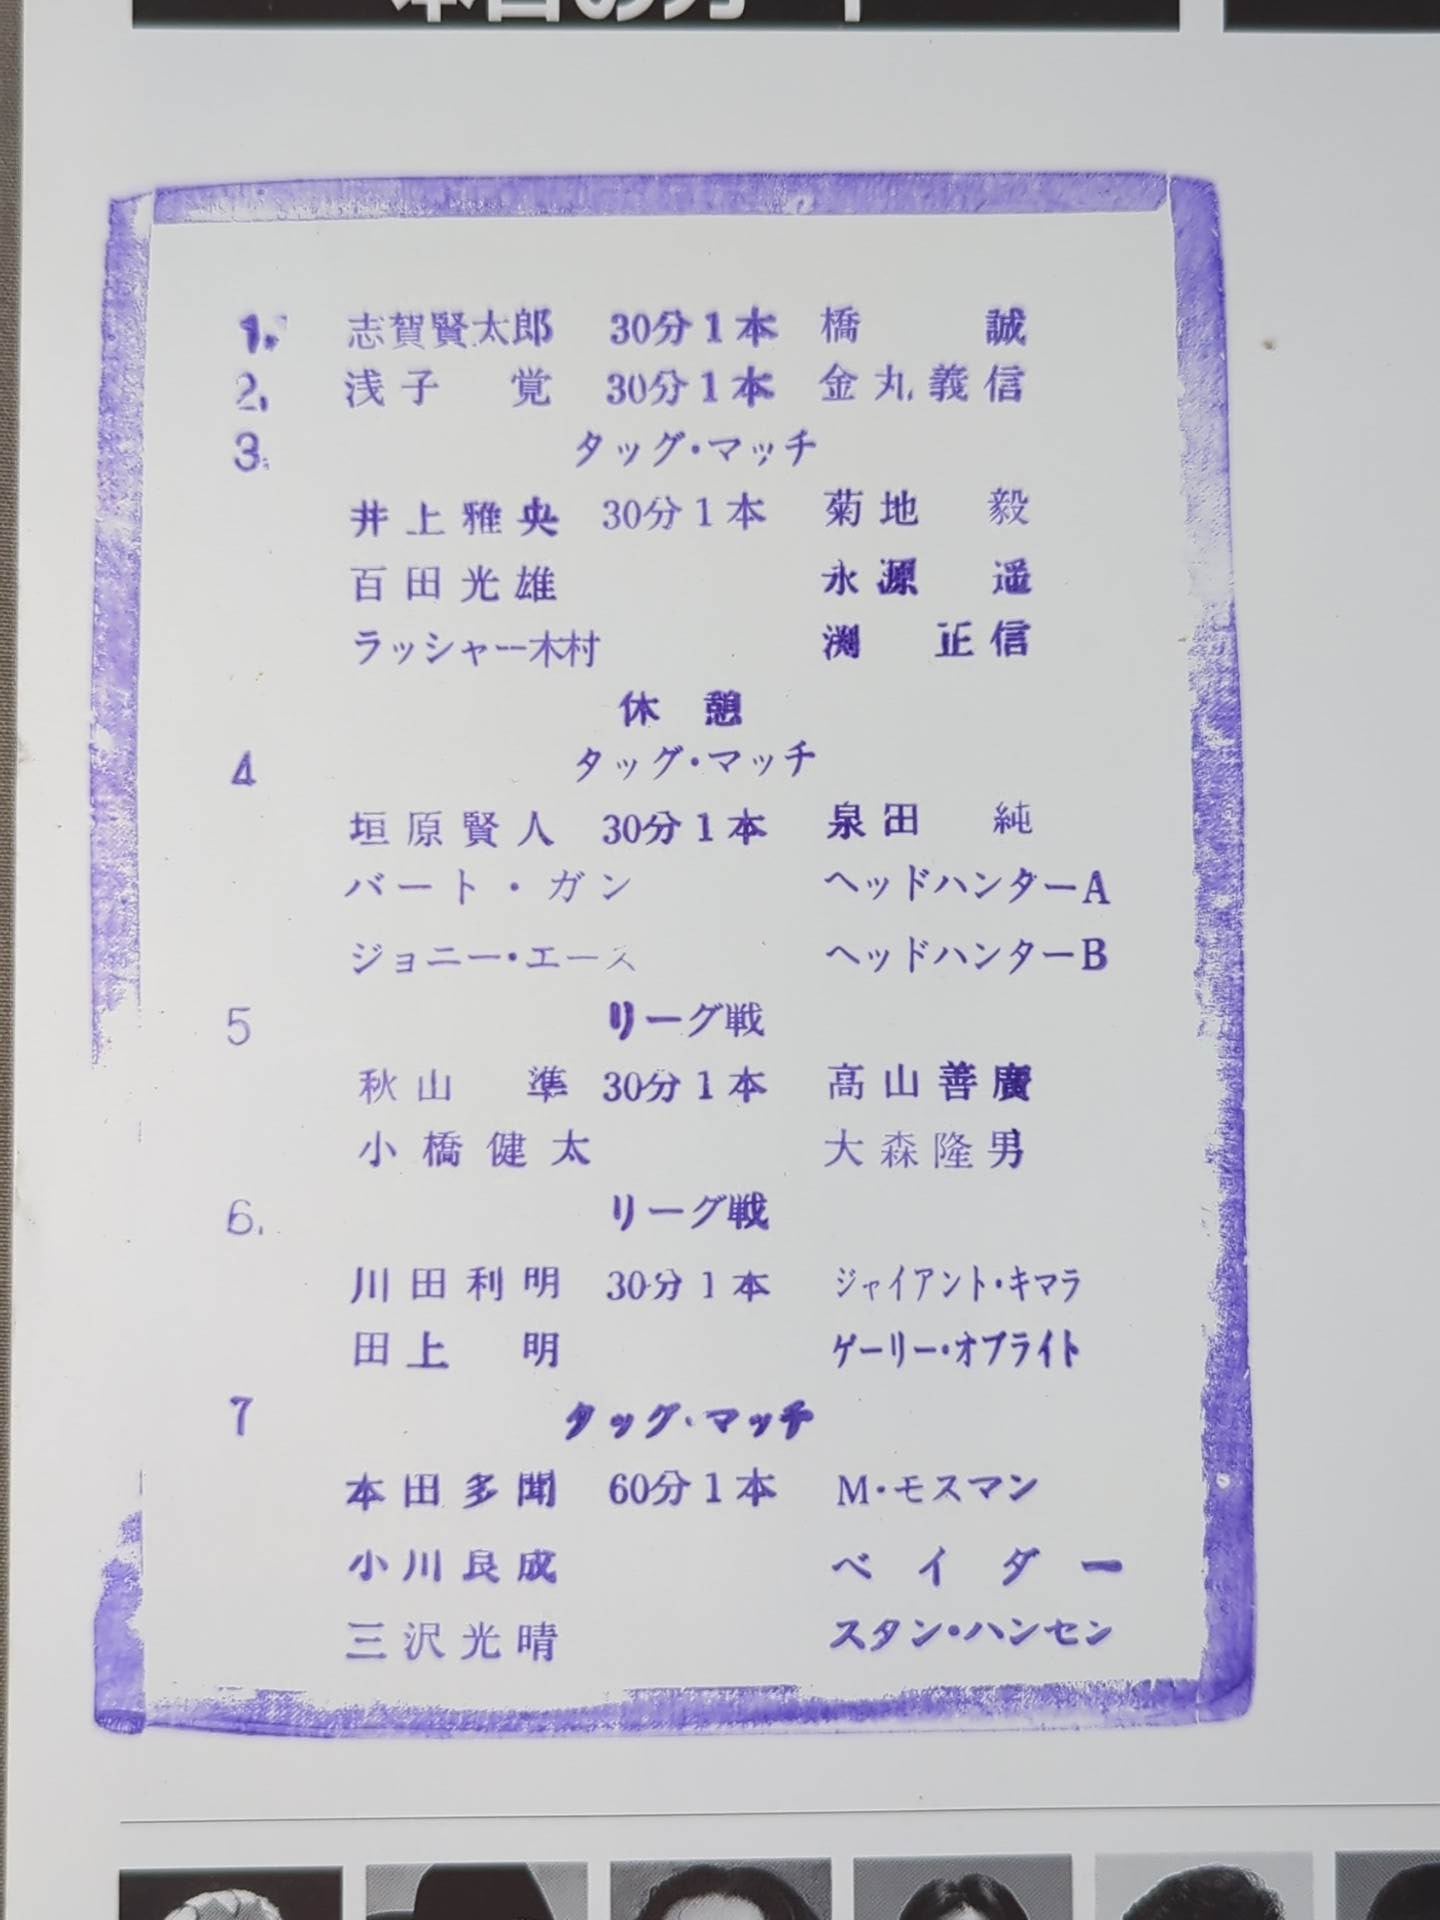 本日のカード
1. 志賀賢太郎 30分1本 橋 誠
2. 浅子 覚 30分1本 金丸義信
3. タッグ・マッチ
井上雅央 30分1本 菊地 毅
百田光雄 永源 遥
ラッシャー木村 渕 正信
休憩
4 タッグ・マッチ
垣原賢人 30分1本 泉田 純
バート・ガン ヘッドハンターA
ジョニー・エース ヘッドハンターB
5 リーグ戦
秋山 準 30分1本 高山善廣
小橋健太 大森隆男
6. リーグ戦
川田利明 30分1本 ジャイアント・キマラ
田上 明 ゲーリー・オブライト
7 タッグ・マッチ
本田多聞 60分1本 M・モスマン
小川良成 ベイダー
三沢光晴 スタン・ハンセン